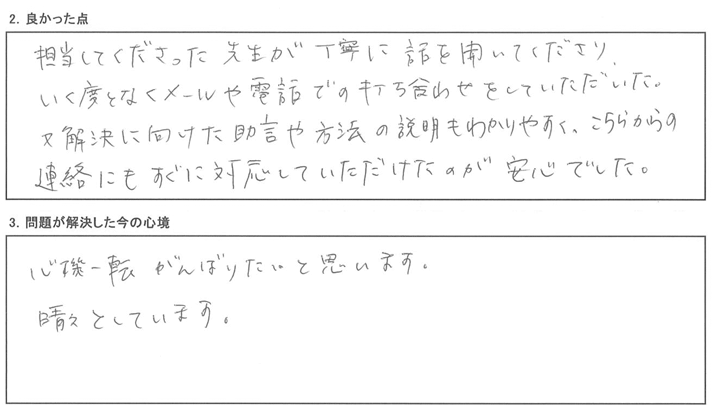 2. 良かった点
担当してくださった先生が丁寧に話を聞いてくださり、
いく度となくメールや電話での打ち合わせをしていただいた。
又解決に向けた助言や方法の説明もわかりやすく、こちらからの
連絡にもすぐに対応していただけたのが安心でした。
3. 問題が解決した今の心境
心機一転がんばりたいと思います。
晴々としています。